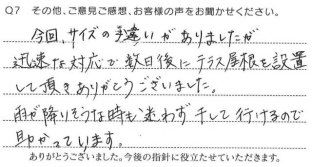 Q7 その他、ご意見ご感想、お客様の声をお聞かせください。
今回、サイズの手違いがありましたが
迅速な対応で数日後にテラス屋根を設置
して頂きありがとうございました。
雨が降りそうな時も迷わず干して行けるので
助かっています。
ありがとうございました。今後の指針に役立たせていただきます。